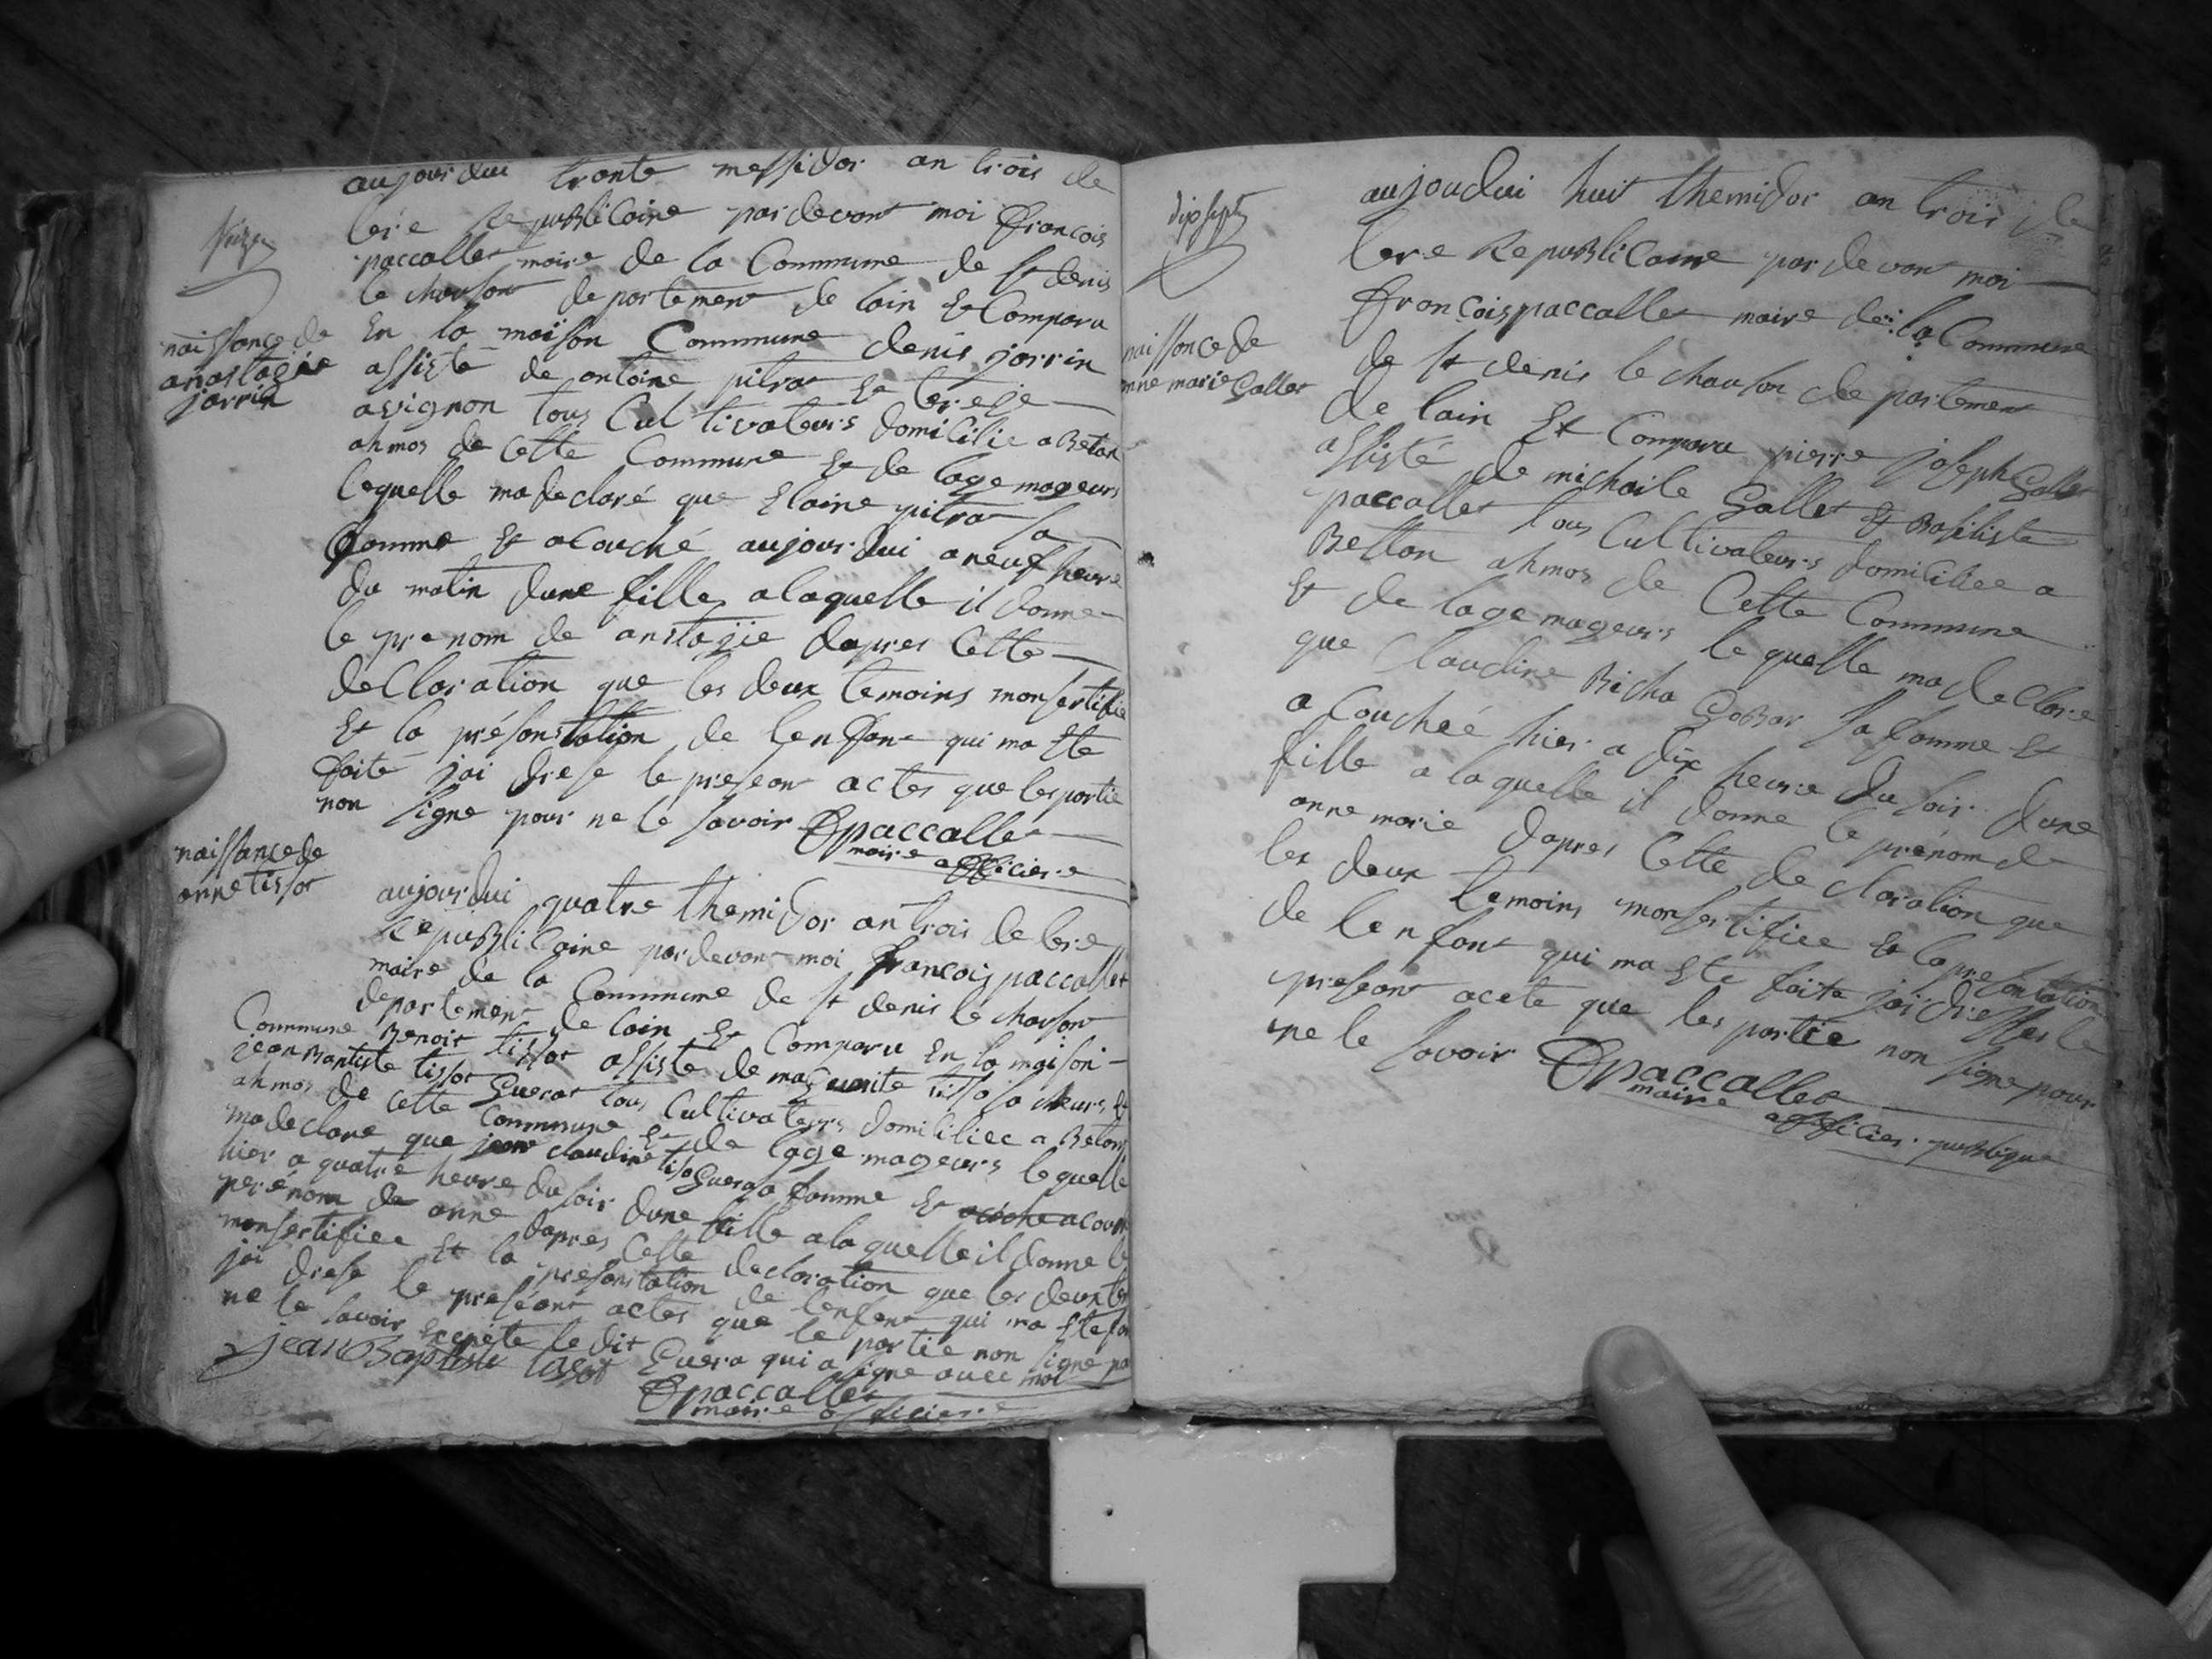 seize
aujourdui trante messidor an trois de
lere Republicaine pardevant moi francois
paccallet maire de la Commune de st denis
le chauson departement de lain Et Comparu
En la maison Commune denis jarrin
naissance de
anastagie
jarrin
assiste de antoine pitrat Et
avignon tous Cul tivateurs domicilie a Betan
ahmos de Cette Commune Et de lage mageurs
lequelle ma declaré que Elaine pitrat sa
famme Et acouché aujourdui a neuf heure
du matin dune fille alaquelle il donne
le prenom de anstagie dapres Cette
deClaration que les deux temoins monsertifie
Et la présanstation de lenfant qui ma Ete
faite jai drese le preseant actes que les partie
non signe pour ne le savoir fpaccallet
maire officiere
naissance de
anne tissot
aujourdui quatre themidor an trois de lere
Republicaine pardevant moi francois paccallet
maire de la Commune de st denis le chauson
departement de lain Et Comparu En la maison
Commune Benoit tissot assiste de marguerite tisso sa seurs Et
jean Bantiste tissot Guerat tous Cultivateurs domiciliee a Beton
ahmos de Cette Commune Et de lage mageurs lequelle
ma declare que claudine tiso Guera sa famme Et acou
hier a quatre heure du soir dune fille alaquelle il donne le
perénom de anne dapres Cette declaration que les deux te
monsertifiee Et la présanstation de lenfent qui ma Ete fa
jai drese le preséant actes que le partie non signe po
ne le savoir Excepte le dit Guera qui a signe avec moi
jean Baptiste tissot
fpaccallet
maire officiere
dixsept
aujoudui huit themidor an trois de
lere RepuBliCaine par devant moi
francois paccallet maire de la Commune
naissance de
anne marie Gallet
de st denis le chauson departement
de lain Et Comparu pierre joseph Gallet
assisté de michaile Gallet Et Batiliste
paccallet tous Cultivateurs domiciliee a
Betton ahmos de Cette Commune
Et de lage mageurs le quelle ma deClare
que Claudine Richa GoBar sa famme Et
a Couchéé hier a dix heure du soir dune
fille a laquelle il donne le prénom de
anne marie dapres Cette declaration que
les deux temoins monsertifiee Et la presantation
de lenfant qui ma Ete faite jai dresser le
preseant acete que les partie non signe pour
ne le savoir fpaccallet
maire officier publique